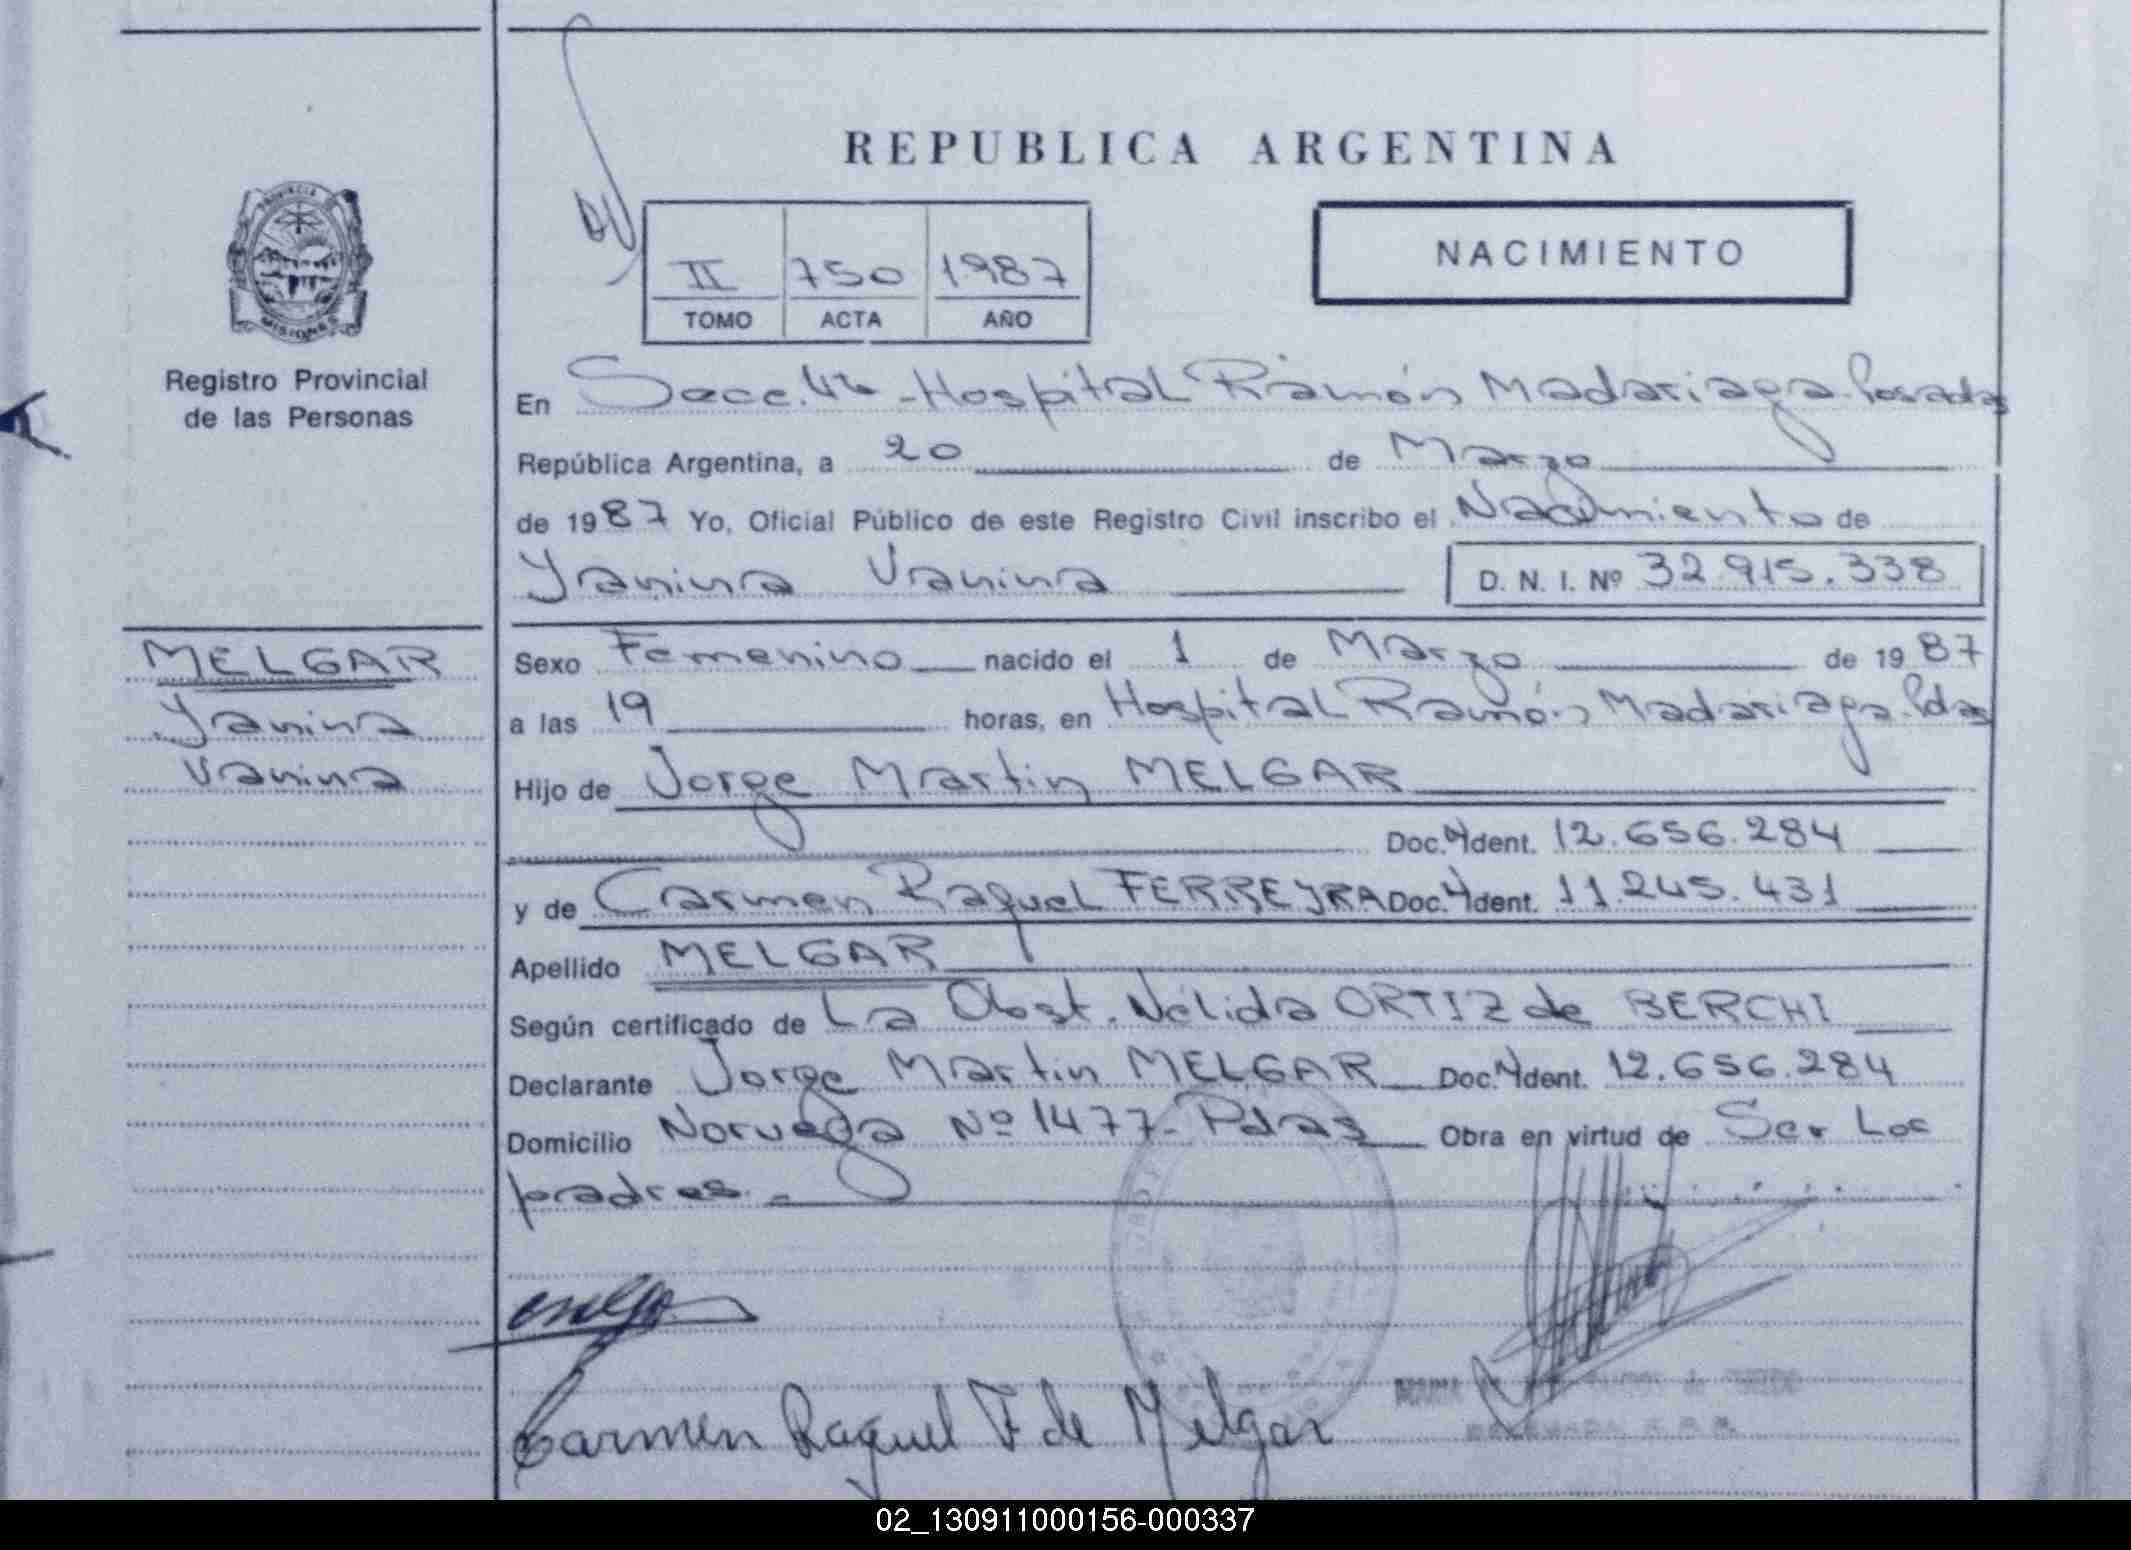 REPUBLICA ARGENTINA
NACIMIENTO
II 750 1987
TOMO ACTA AÑO
PROVINCIA
MISIONES
Registro Provincial
de las Personas
En Secc. 4ta - Hospital Ramón Madariaga. Posadas
República Argentina, a 20 de Marzo
de 1987 Yo, Oficial Público de este Registro Civil inscribo el Nacimiento de
Yanina Vanina D. N. I. Nº 32.915.338
MELGAR
Yanina
Vanina
Sexo Femenino nacido el 1 de Marzo de 1987
a las 19 horas, en Hospital Ramón Madariaga. Pdas
Hijo de Jorge Martin MELGAR
Doc. Ident. 12.656.284
y de Carmen Raquel FERREYRA Doc. Ident. 11.245.431
Apellido MELGAR
Según certificado de La Obst. Nélida ORTIZ de BERCHI
Declarante Jorge Martin MELGAR Doc. Ident. 12.656.284
Domicilio Noruega Nº 1477 - Pdas Obra en virtud de Ser Los
padres. -
Carmen Raquel F de Melgar
02_130911000156-000337